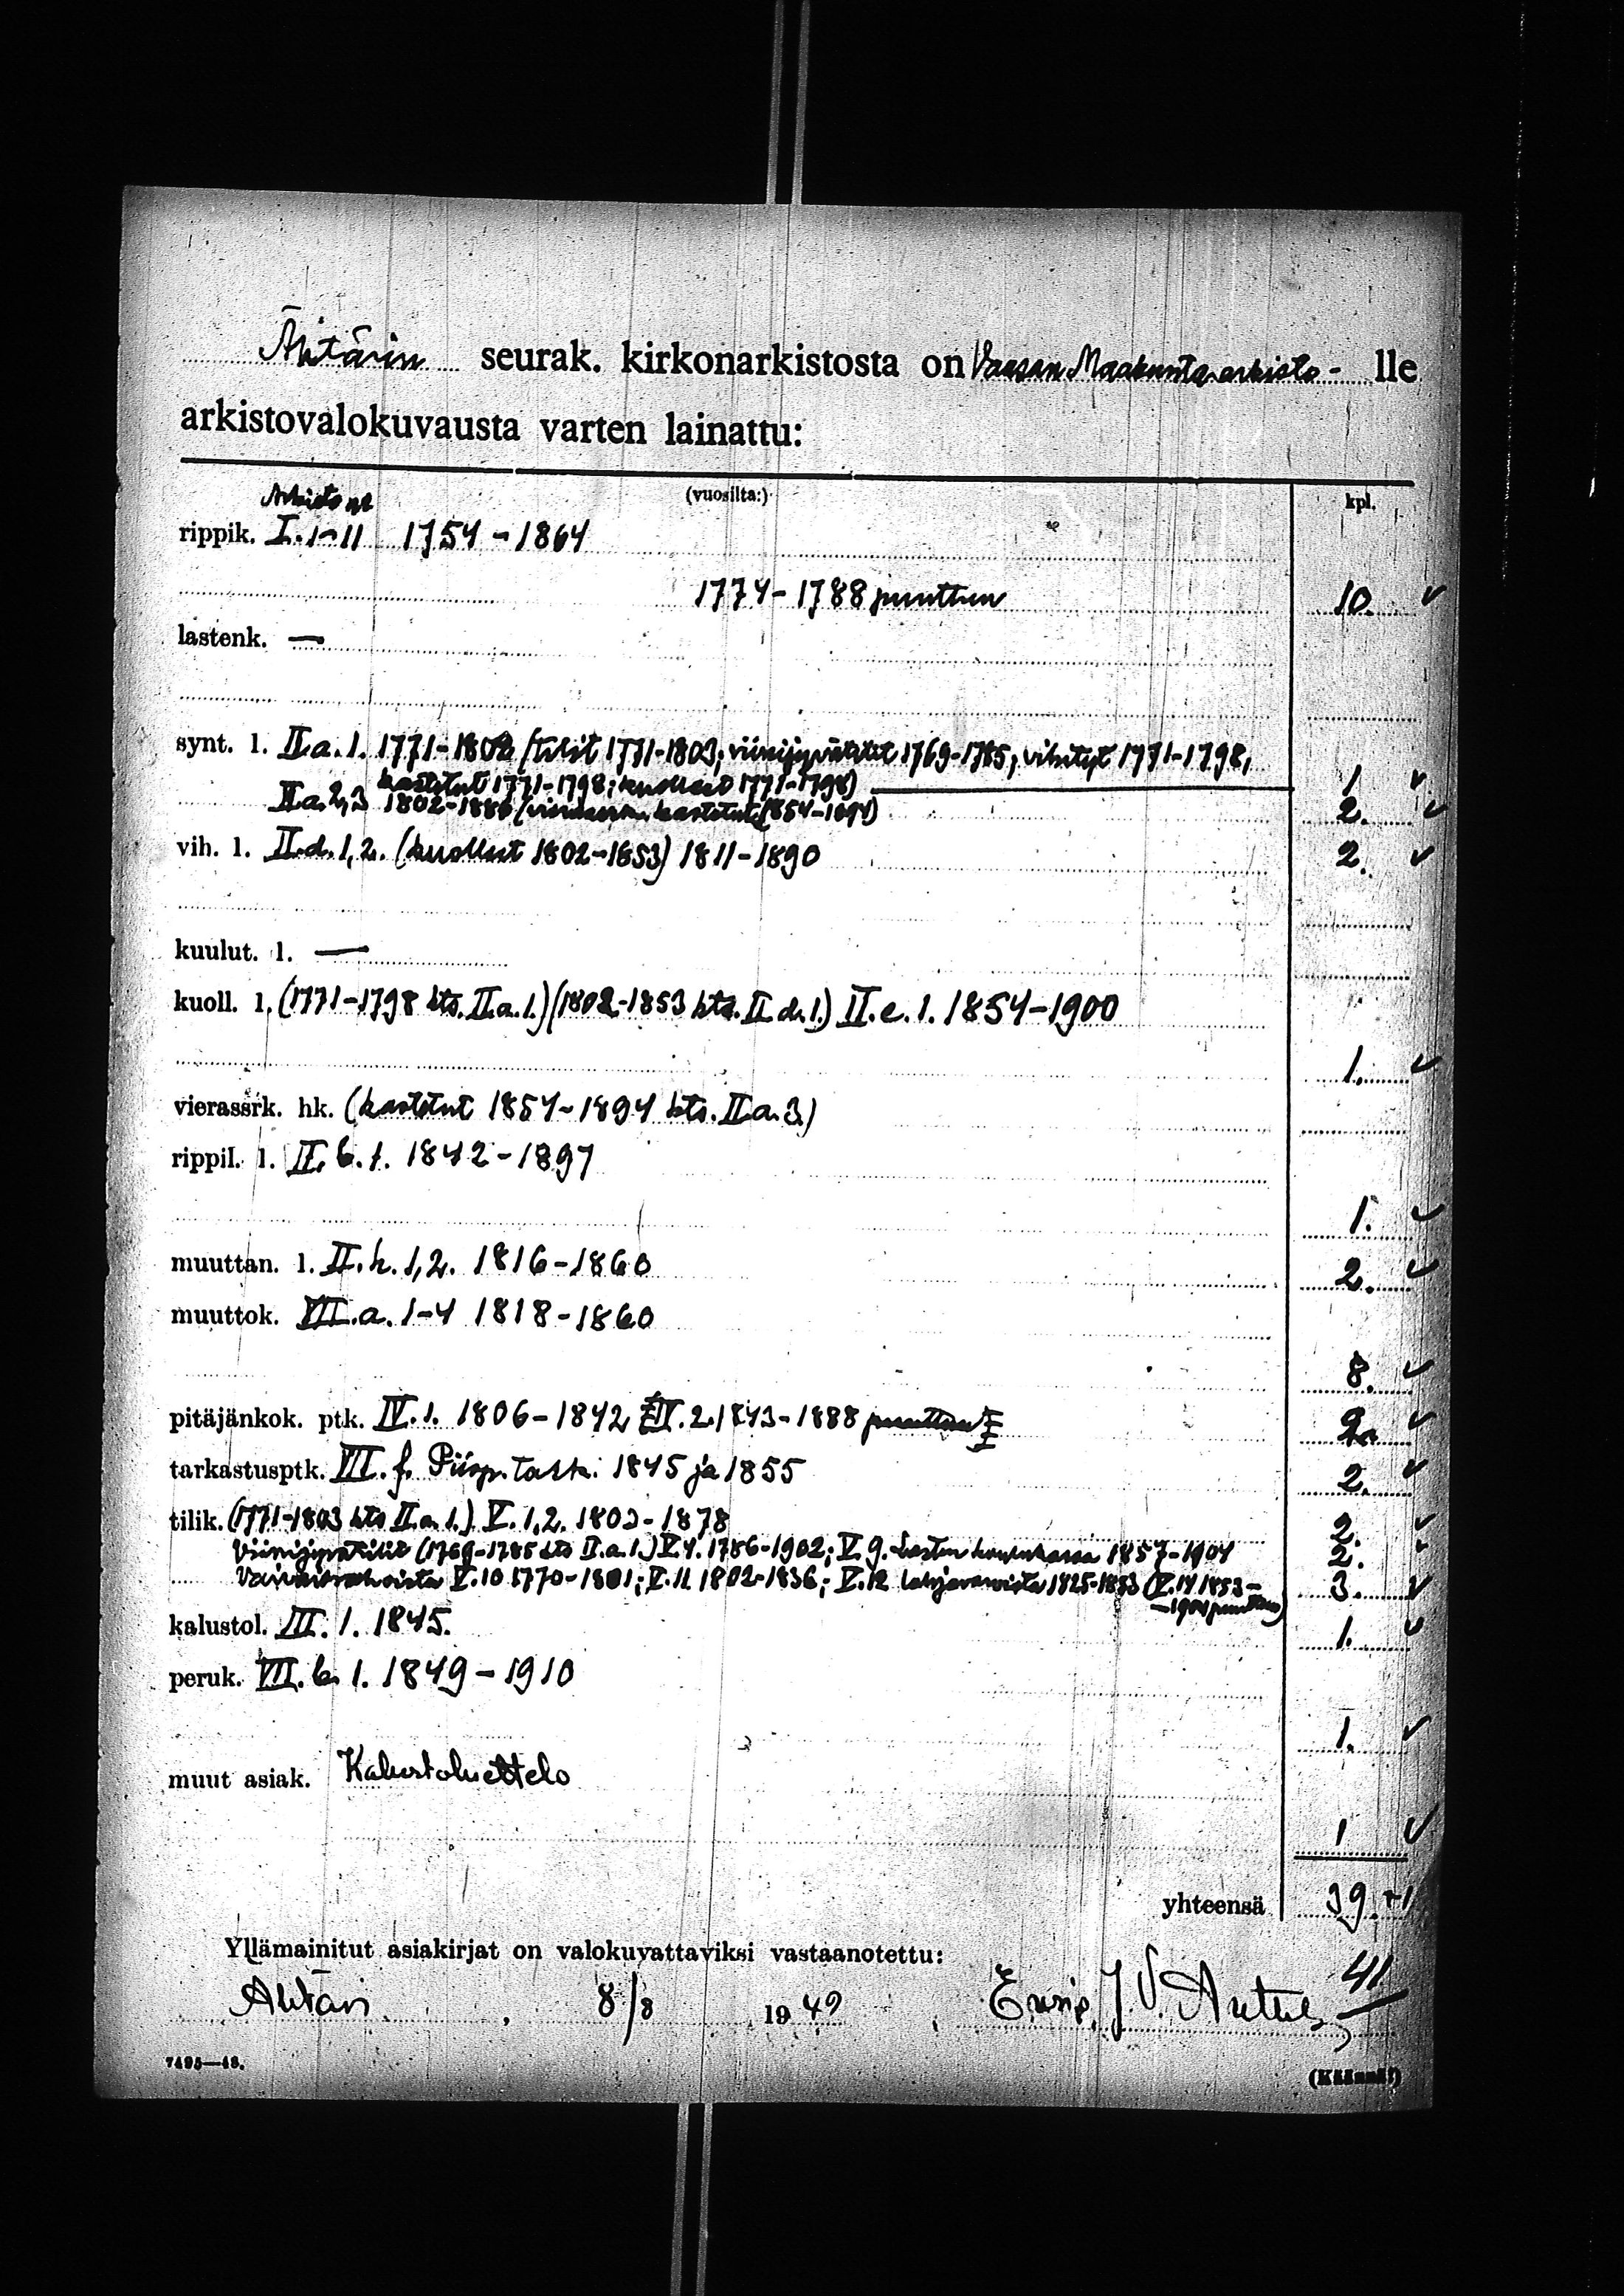 Ähtärin seurak. kirkonarkistosta on Vaasan Maakunta-arkisto-lle
arkistovalokuvausta varten lainattu:
(vuosilta:) kpl.
Arkisto nr
rippik. I. 1-11 1754-1864
1774-1788 puuttuu 10. ✓
lastenk. —
synt. l. II.a.1. 1771-1802 (tilit 1771-1803; viinijyvätilit 1769-1785; vihityt 1771-1798,
kastetut 1771-1798; kuolleet 1771-1798) 1 ✓
II.a.2,3 1802-1886 (kastetut 1854-1894) 2. ✓
vih. l. II.d.1,2. (kuolleet 1802-1853) 1811-1890 2. ✓
kuulut. l. —
kuoll. l. (1771-1798 kts. II.a.1.) (1802-1853 kts. II.d.1.) II.e.1. 1854-1900
1. ✓
vierassrk. hk. (kastetut 1854-1894 kts. II.a.3.)
rippil. l. II.b.1. 1842-1897
1. ✓
muuttan. l. II.h.1,2. 1816-1860 2. ✓
muuttok. VII.a. 1-4 1818-1860
8. ✓
pitäjänkok. ptk. IV.1. 1806-1842 IV.2. 1843-1888 puuttuu 2. ✓
tarkastusptk. III.f. Piisp. tark. 1845 ja 1855 2. ✓
tilik. (1771-1803 kts II.a.1.) V.1,2. 1803-1878 2. ✓
Viinijyvätilit (1769-1785 kts II.a.1.) V.4. 1786-1902; V.9. Lasten 1857-1904 2. ✓
V.10 1770-1801; V.11 1802-1836; V.12 1825-1853 (V.14 1853- 3. ✓
-1901 puuttuu)
kalustol. III.1. 1845. 1. ✓
peruk. VII.b.1. 1849-1910
1. ✓
muut asiak. Kalustoluettelo
1 ✓
yhteensä 39.+1
Yllämainitut asiakirjat on valokuvattaviksi vastaanotettu: 41
Ähtäri, 8/8 1949, J.V.
7495—48. (Käännä!)